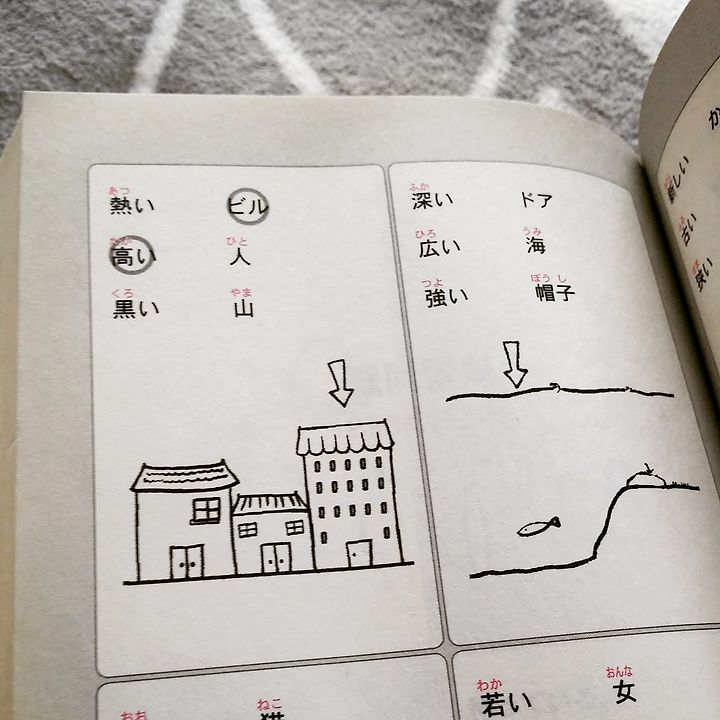 あつ
熱い ビル
高い 人
ひと
くろ やま
黒い 山
ふか
深い ドア
ひろ うみ
広い 海
つよ ぼうし
強い 帽子
ねこ
わか おんな
若い 女
おお
古い
狭い